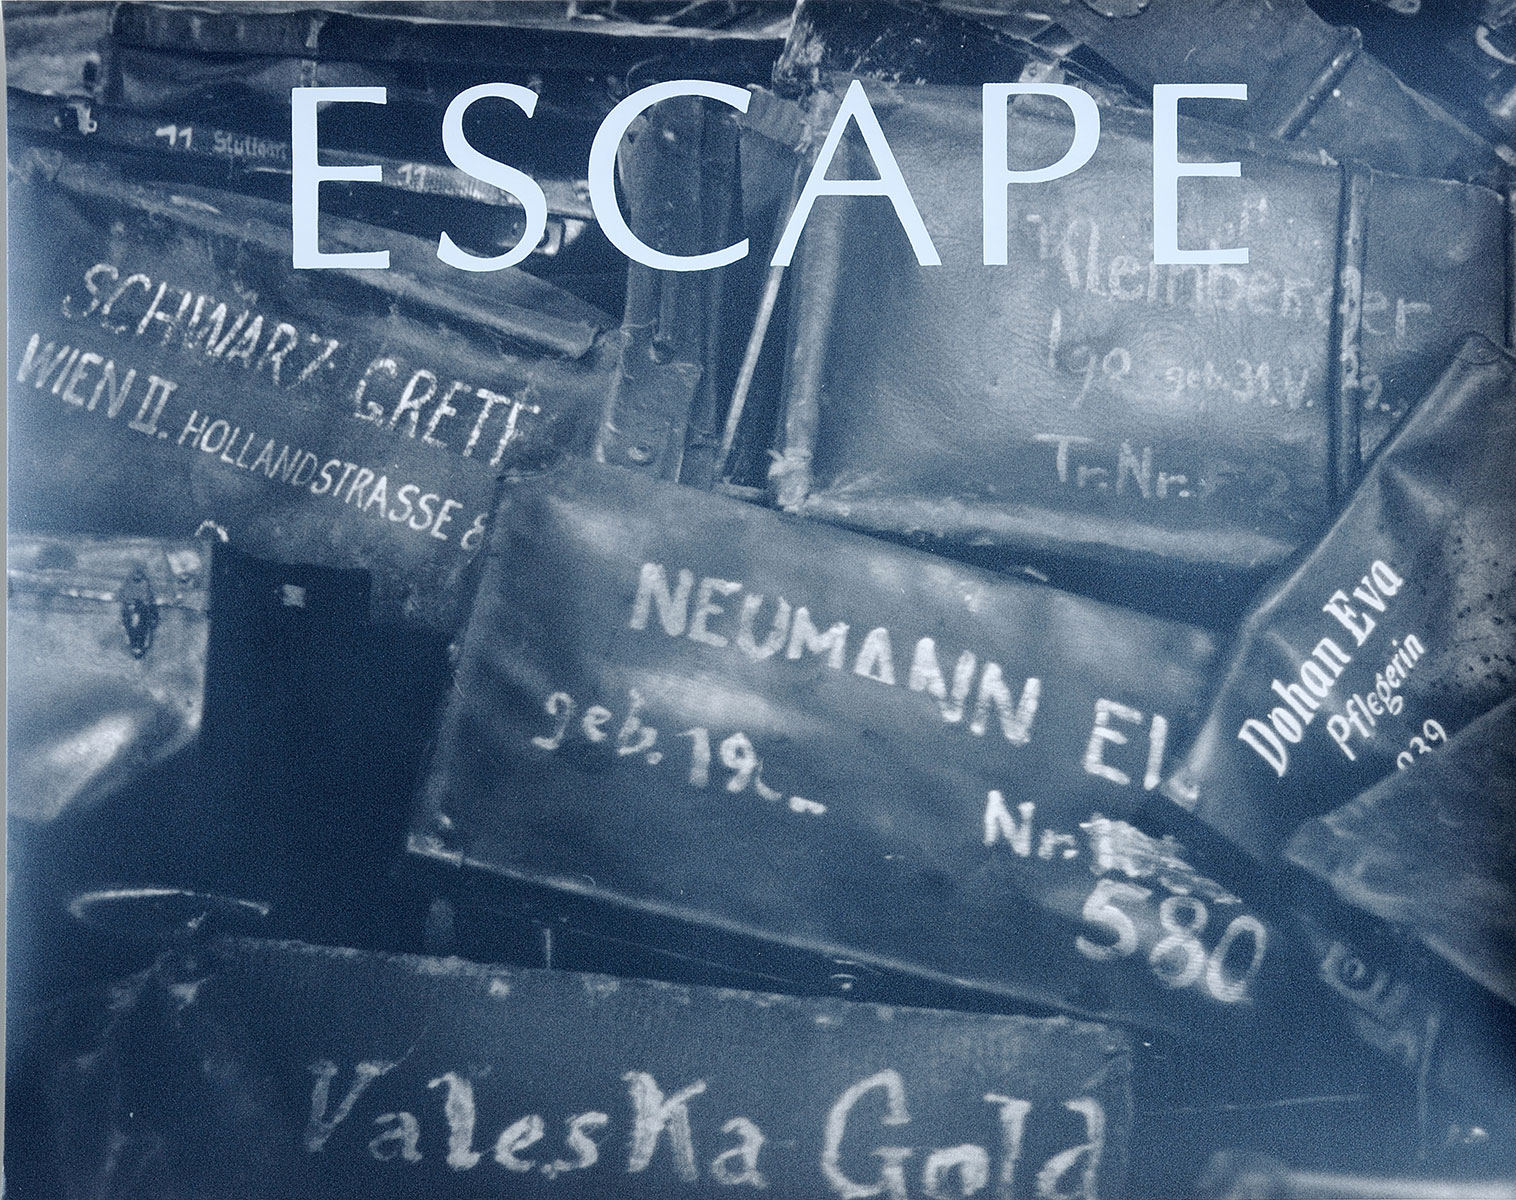 ESCAPE
11
11
SCHWARZ GRETE
WIEN II. HOLLANDSTRASSE 8
Kleinberger
geb. 31.V.
Tr. Nr.
NEUMANN
geb. 19
Nr.
580
Dohan Eva
Pflegerin
Valeska Gold